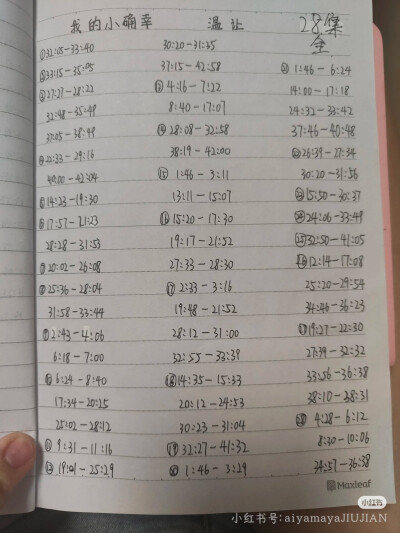 我的小确幸 温让 28集全
①32:05-33:40
②33:15-35:05
③27:27-28:22
32:48-35:49
37:05-38:49
④22:33-29:16
40:00-42:04
⑤14:23-19:30
⑥17:57-21:23
28:28-31:53
⑦20:02-26:08
⑧25:36-28:04
31:58-33:44
⑨2:43-4:06
6:18-7:00
⑩6:24-8:40
17:34-20:25
25:02-28:12
⑪9:31-11:16
⑫19:01-25:29
30:20-31:35
37:15-42:58
⑬4:16-7:22
8:40-17:07
⑭28:08-32:58
38:19-42:00
⑮1:46-3:11
13:11-15:07
⑯15:20-17:30
19:17-21:52
27:33-28:30
⑰2:33-3:16
19:48-21:52
28:12-31:00
32:55-33:39
⑱14:35-15:33
20:12-24:53
30:23-31:04
⑲32:27-41:32
⑳1:46-3:29
㉑1:46-6:24
14:00-17:18
24:32-33:42
37:46-40:48
㉒26:39-27:34
30:20-31:56
㉓15:50-30:37
㉔24:06-33:49
㉕32:50-41:05
㉖12:14-17:08
25:20-29:54
34:46-36:23
㉗19:27-22:30
27:39-32:32
33:56-36:38
38:10-28:31
㉘4:28-6:12
8:30-10:06
34:57-36:38
Maxleaf
小红书
小红书号:aiyamayaJIUJIAN